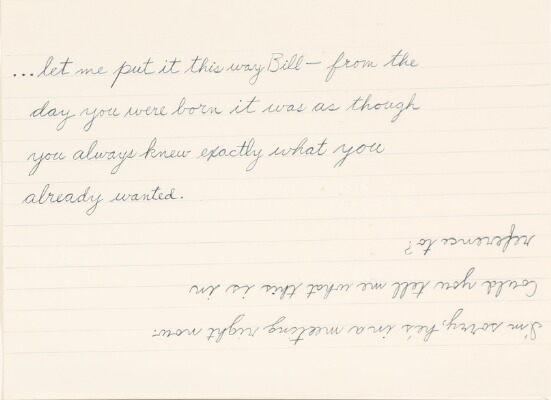 ...let me put it this way Bill — from the
day you were born it was as though
you always knew exactly what you
already wanted.
I'm sorry, he's in a meeting right now.
Could you tell me what this is in
reference to?